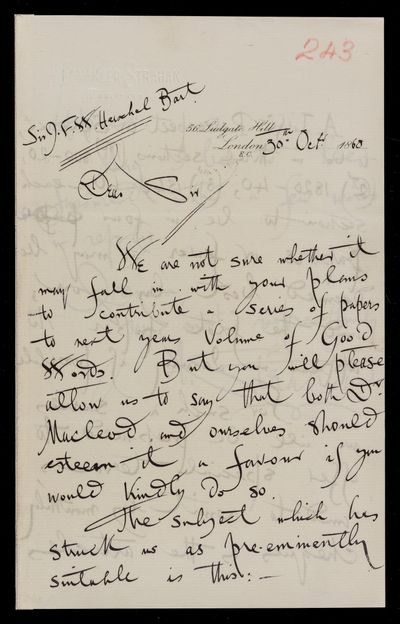 243
Sir J. F. W. Herschel Bart.
56 Ludgate Hill
London 30th Oct 1863
E.C.
Dear Sir
We are not sure whether it
may fall in with your plans
to contribute a series of papers
to next years Volume of Good
Words. But you will please
allow us to say that both Dr
Macleod and ourselves should
esteem it a favour if you
would kindly do so.
The subject which has
struck us as pre-eminently
suitable is this:—